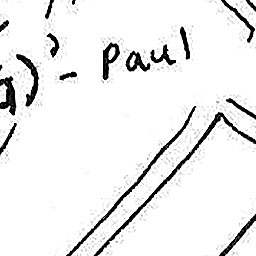 )' - Paul